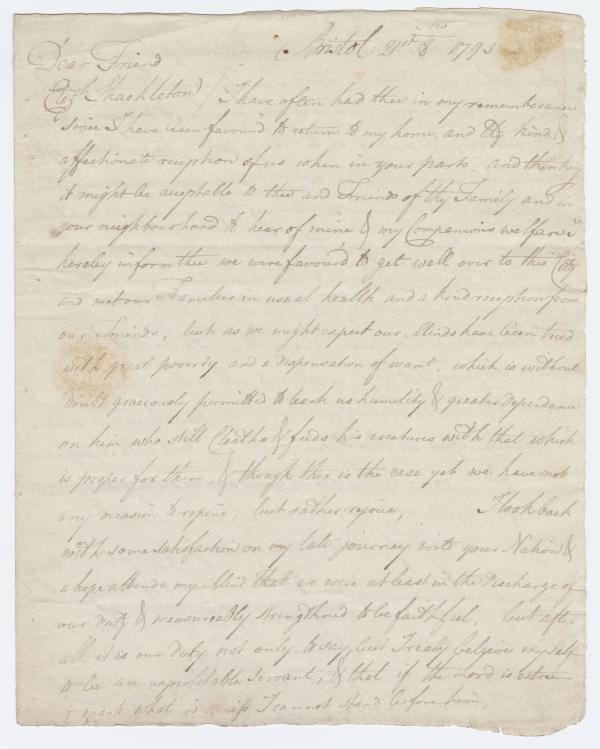 Bristol 21st 8 mo 1793
Dear Friend
Eliz. Shackleton / I have often had thee in my rememberance
since I have been favour'd to return to my home, and thy kind &
affectionate reception of us when in your parts, and thinking
it might be aceptable to thee and Friends of thy Family and in
your neighbourhood to hear of mine & my Companions welfare I
hereby inform thee we were favour'd to get well over to this City
and met our Families in usual health and a kind reception from
our Friends, but as we might expect our Minds have been tried
with great poverty and a dispensation of want, which is without
doubt graciously permitted to teach us humility & greater dependance
on him who still Cloaths & feeds his creatures with that which
is proper for them, & though this is the case yet we have not
any occasion to repine, but rather rejoice, I look back
with some satisfaction on my late journey into your Nation &
a hope attends my Mind that we were at least in the Discharge of
our duty & measureably strengthned to be faithful, but after
all it is our duty not only to say, but I realy beleive myself
to be an unprofitable servant, & that if the Lord is extreme
mark what is amiss I cannot stand before him,